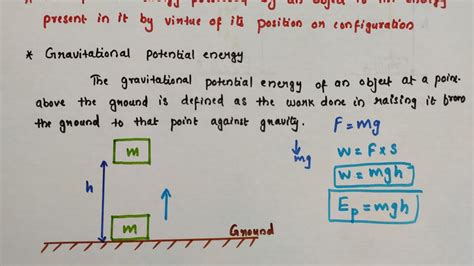 present in it by virtue of its position on configuration
* Gravitational Potential energy
The gravitational potential energy of an object at a point
above the ground is defined as the work done in raising it from
the ground to that point against gravity.
F = mg
mg
W = F × s
W = mgh
Ep = mgh
m
h
m
Ground